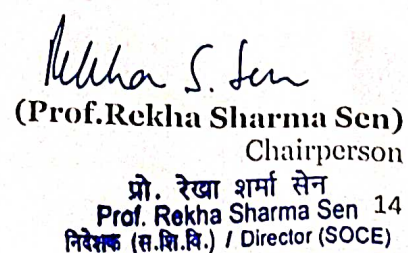 Rekha S. Sen
(Prof.Rekha Sharma Sen)
Chairperson
प्रो. रेखा शर्मा सेन
Prof. Rekha Sharma Sen 14
निदेशक (स.शि.वि.) / Director (SOCE)